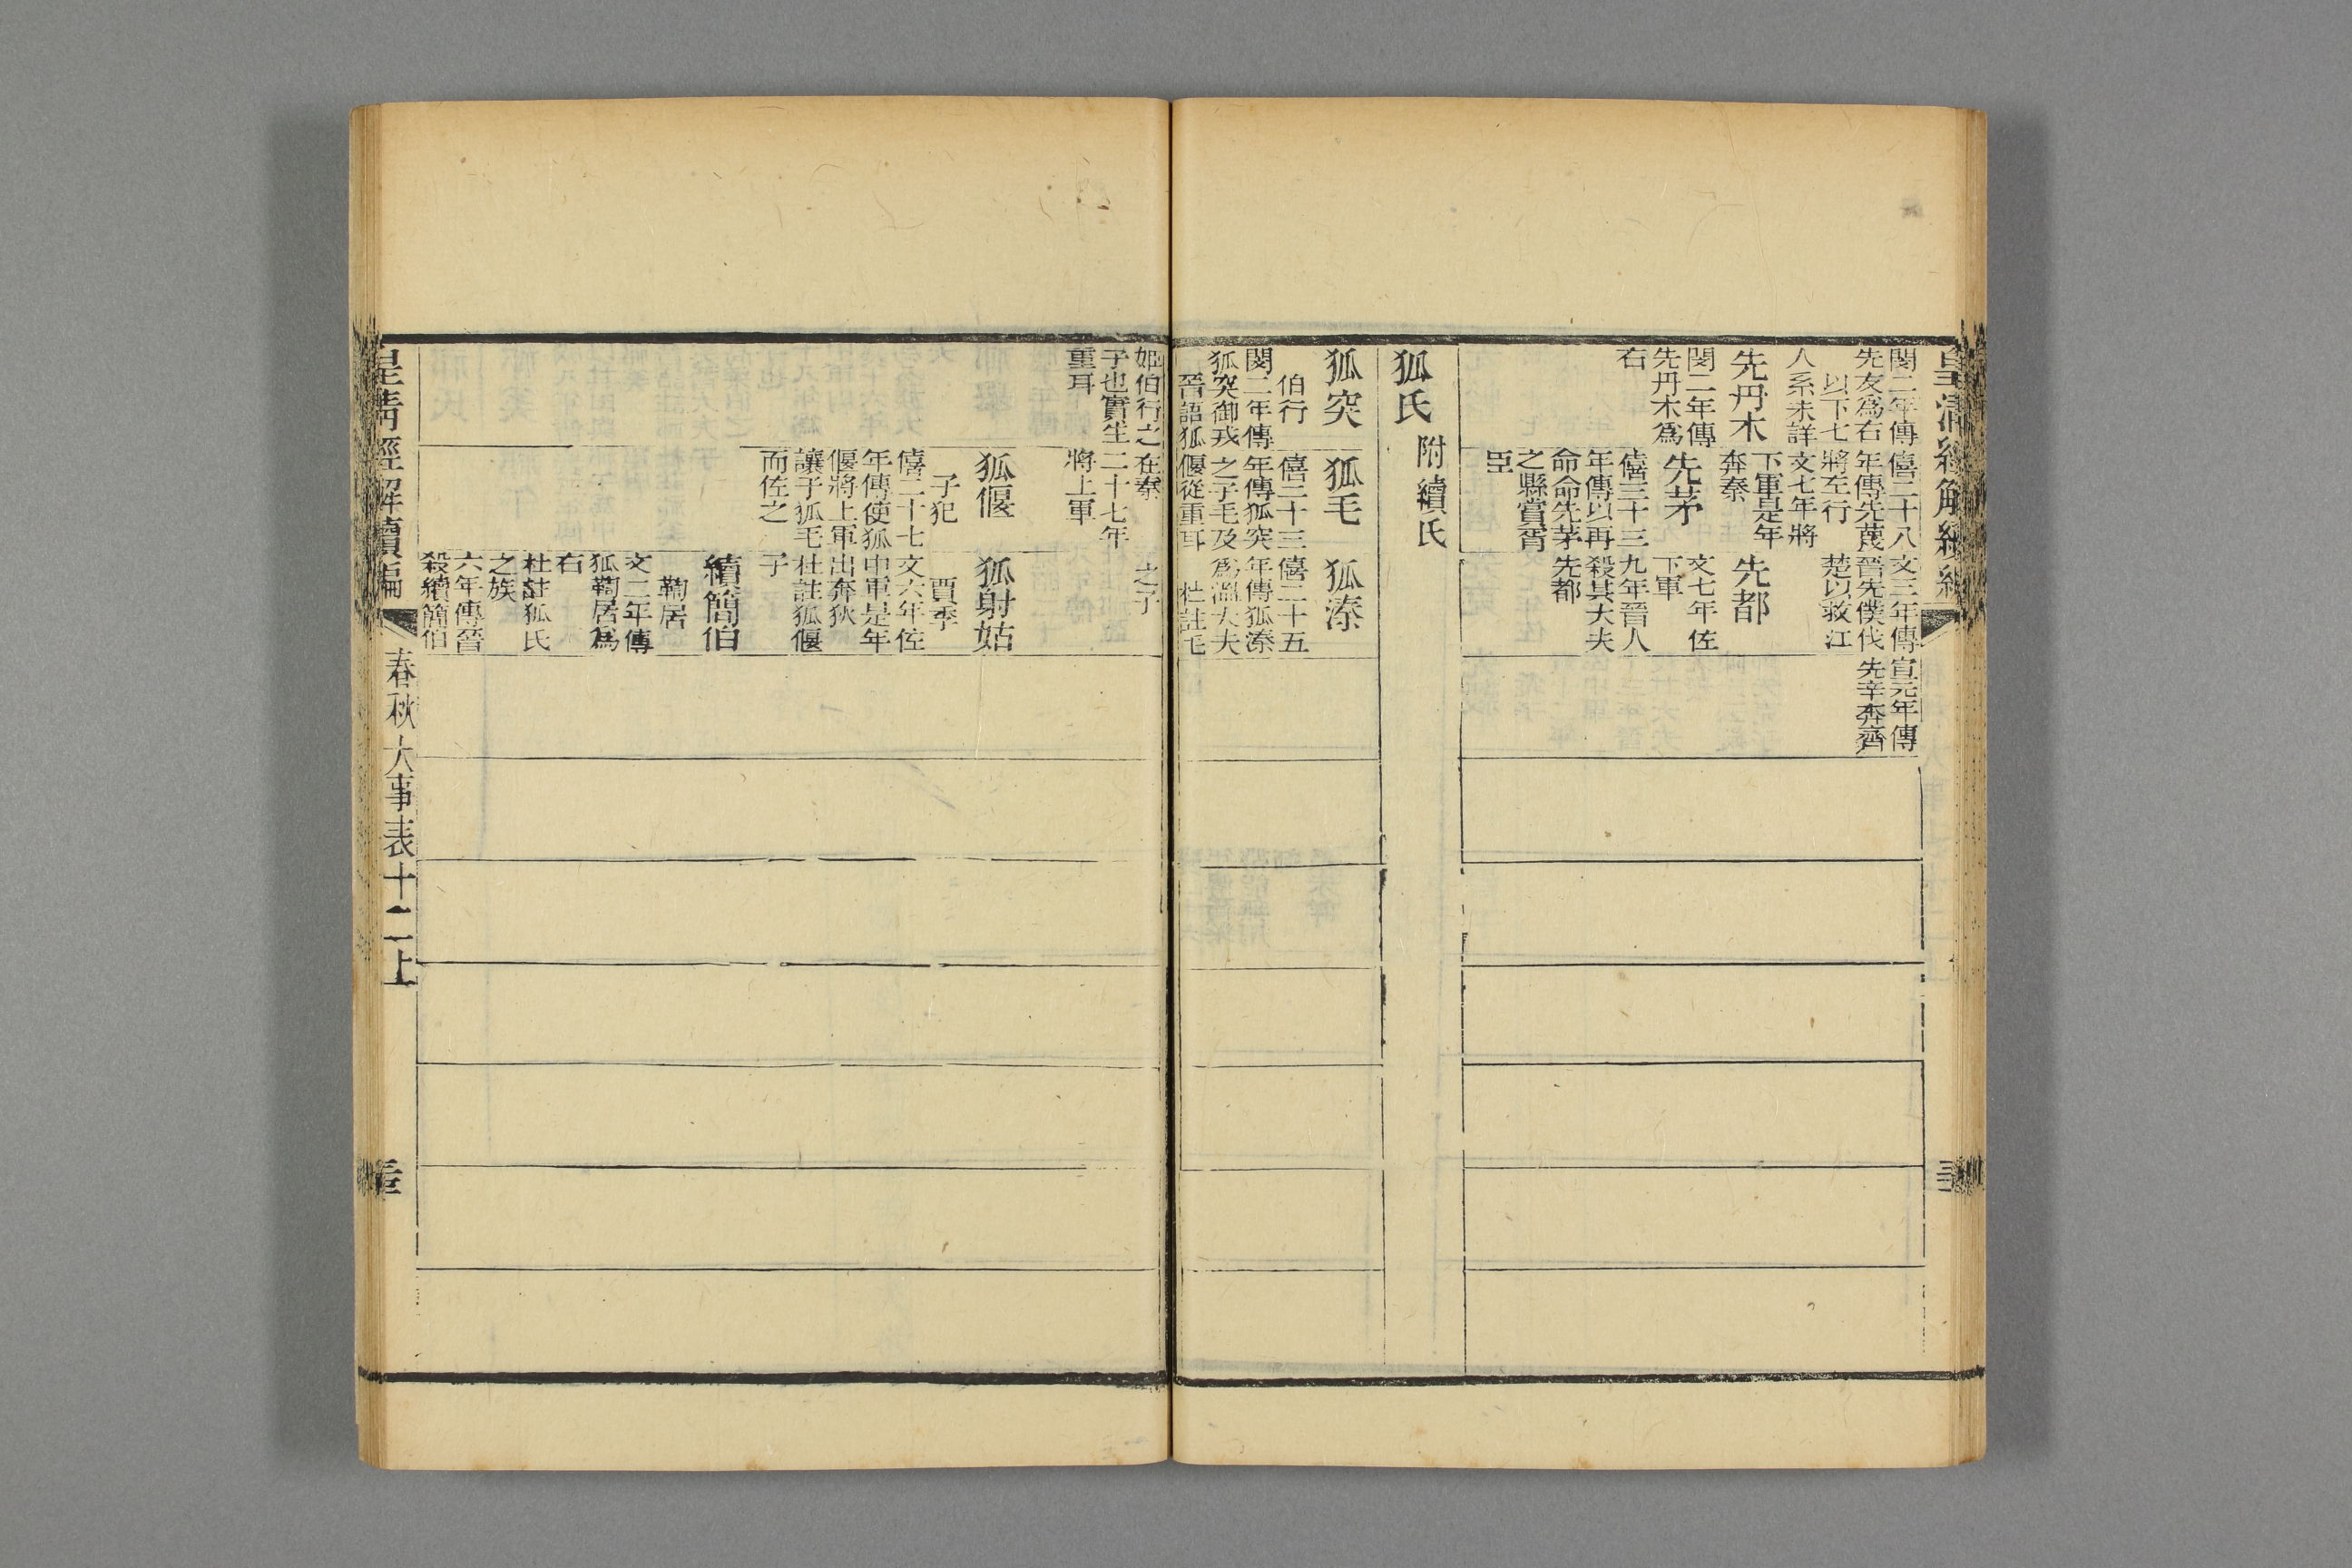 皇清經解續編
閔二年傳
先友爲右
以下七
人系未詳
先丹木
閔二年傳
先丹木爲
右
僖二十八
年傳先蔑
將左行
文七年將
下軍是年
奔秦
先茅
僖三十三
年傳以再
命命先茅
之縣賞胥
臣
文三年傳
晉先僕伐
楚以救江
先都
文七年佐
下軍
九年晉人
殺其大夫
先都
宣元年傳
先辛奔齊
狐氏 附續氏
狐突
伯行
閔二年傳
狐突御戎
晉語狐
狐毛
僖二十三
年傳狐突
之子毛及
偃從重耳
狐溱
僖二十五
年傳狐溱
爲溫大夫
杜註毛
姬伯行之
子也實生
重耳
在秦
二十七年
將上軍
之子
狐偃
子犯
僖二十七
年傳使狐
偃將上軍
讓于狐毛
而佐之
狐射姑
賈季
文六年佐
中軍是年
出奔狄
杜註狐偃
子
續簡伯
鞫居
文二年傳
狐鞫居爲
右
杜註狐氏
之族
六年傳晉
殺續簡伯
皇清經解續編
春秋大事表十二上